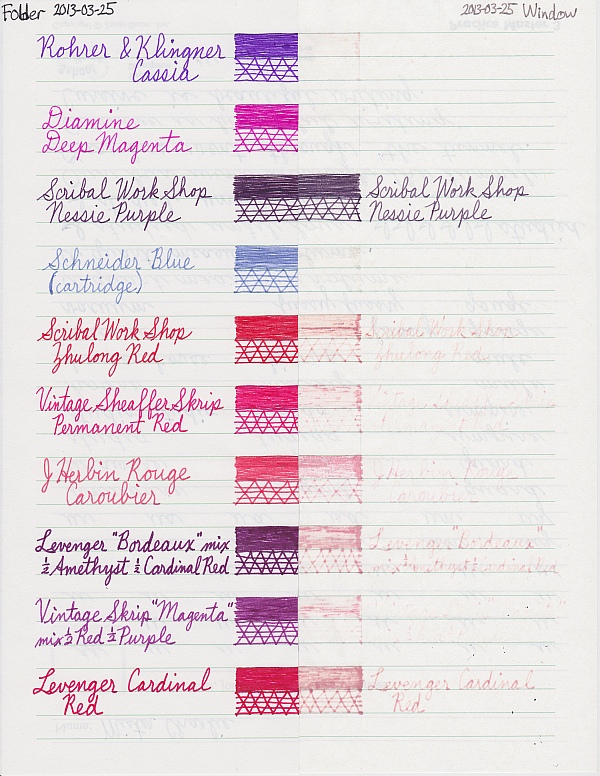 Folder 2013-03-25
2013-03-25 Window
Rohrer & Klingner
Cassia
Diamine
Deep Magenta
Scribal Work Shop
Nessie Purple
Scribal Work Shop
Nessie Purple
Schneider Blue
(cartridge)
Scribal Work Shop
Zhulong Red
Scribal Work Shop
Zhulong Red
Vintage Sheaffer Skrip
Permanent Red
J Herbin Rouge
Caroubier
J Herbin
Caroubier
Levenger "Bordeaux" mix
½ Amethyst ½ Cardinal Red
Levenger "Bordeaux"
mix ½ Amethyst ½ Cardinal Red
Vintage Skrip "Magenta"
mix ½ Red ½ Purple
Levenger Cardinal
Red
Levenger Cardinal
Red